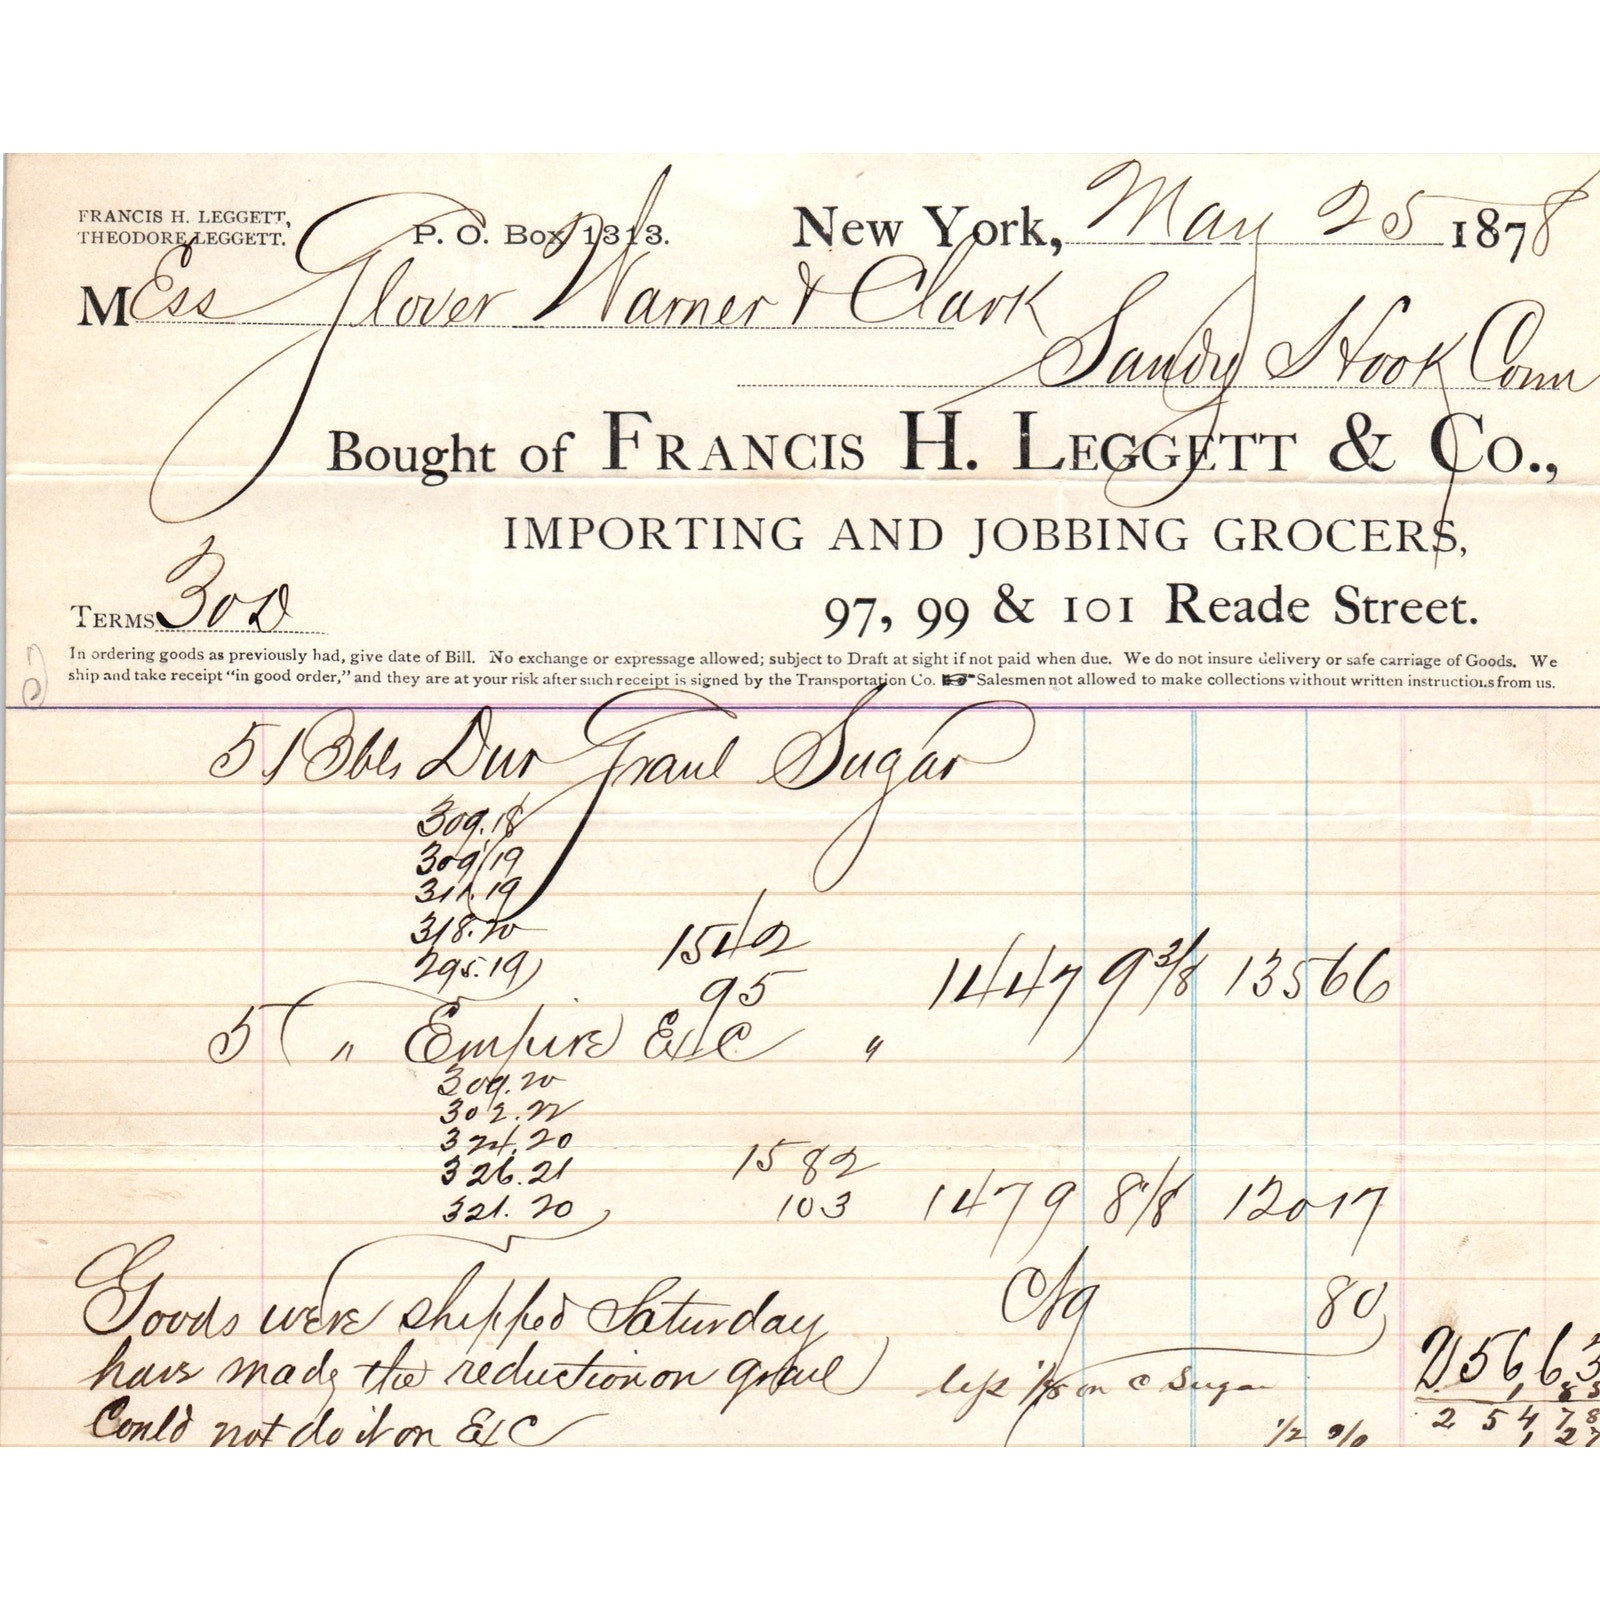 FRANCIS H. LEGGETT,
THEODORE LEGGETT.
P. O. Box 1313.
New York, May 25 1878
Mess Glover Warner & Clark
Sandy Hook Conn
Bought of FRANCIS H. LEGGETT & Co.,
IMPORTING AND JOBBING GROCERS,
TERMS 30 D
97, 99 & 101 Reade Street.
In ordering goods as previously had, give date of Bill. No exchange or expressage allowed; subject to Draft at sight if not paid when due. We do not insure delivery or safe carriage of Goods. We
ship and take receipt "in good order," and they are at your risk after such receipt is signed by the Transportation Co. ☞ Salesmen not allowed to make collections without written instructions from us.
5 Bbls Dur Granl Sugar
309.18
309.19
311.19
318.20
295.19
1542
95
1447 9 3/8 13566
5 " Empire ExC "
309.20
302.22
324.20
326.21
321.20
1582
103
1479 8 1/8 12017
Ctg 80
Goods were shipped Saturday
have made the reduction on granl
Could not do it on ExC
less 1/8 on C Sugar
25663
2 5 4 78
1/2 %
1 27